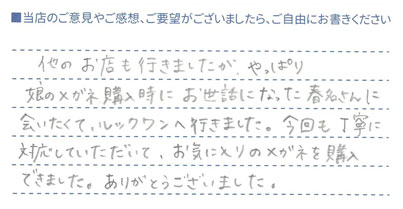 ■当店のご意見やご感想、ご要望がございましたら、ご自由にお書きください
他のお店も行きましたが、やっぱり
娘のメガネ購入時にお世話になった春名さんに
会いたくて、ルックワンへ行きました。今回も丁寧に
対応していただいて、お気に入りのメガネを購入
できました。ありがとうございました。